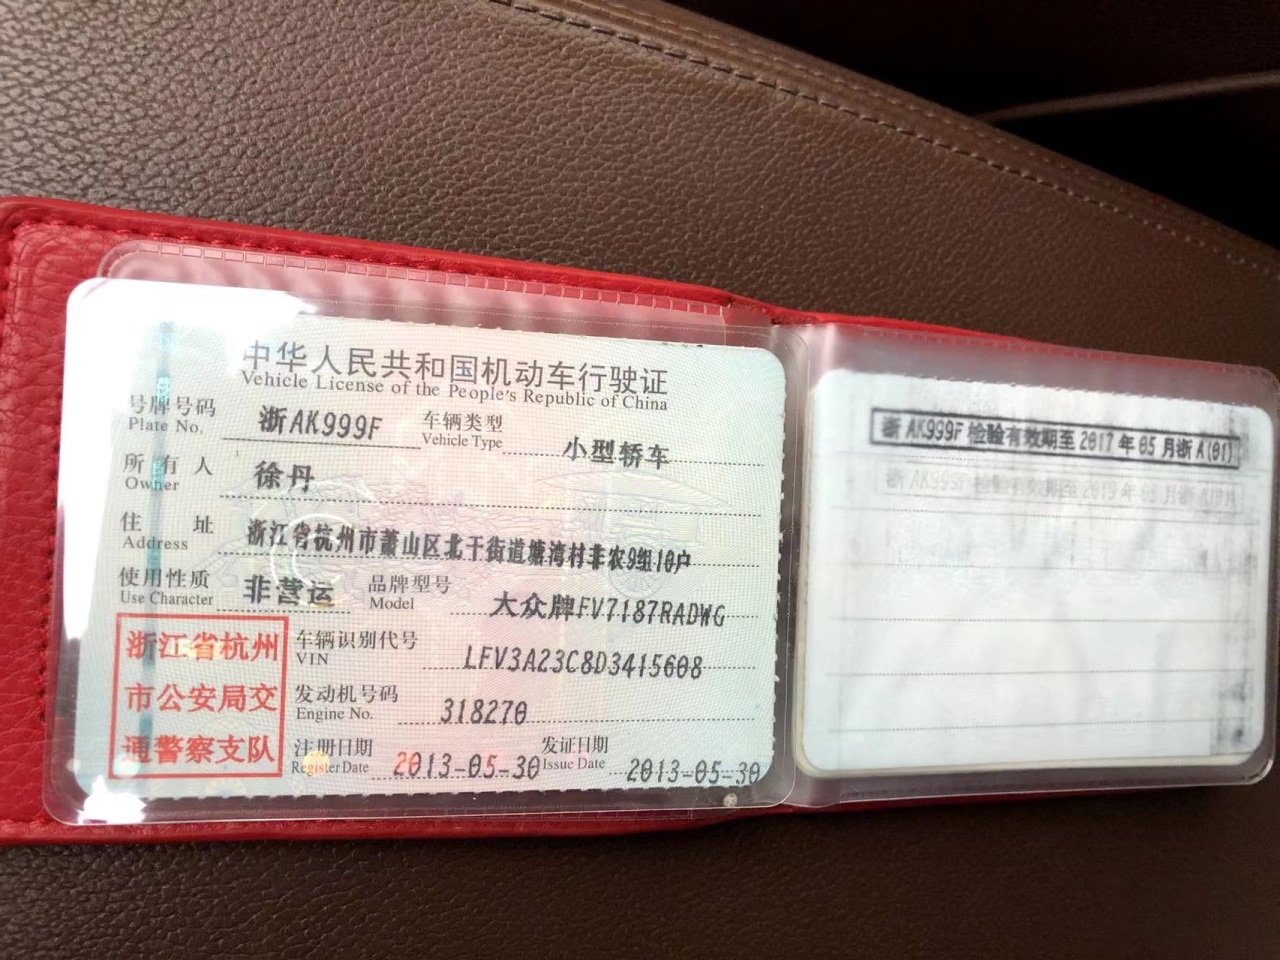 中华人民共和国机动车行驶证
Vehicle License of the People's Republic of China
号牌号码 浙AK999F 车辆类型 小型轿车
Plate No. Vehicle Type
所有人 徐丹
Owner
住址 浙江省杭州市萧山区北干街道塘湾村非农9组10户
Address
使用性质 非营运 品牌型号 大众牌FV7187RADWG
Use Character Model
浙江省杭州
市公安局交
通警察支队
车辆识别代号 LFV3A23C8D3415608
VIN
发动机号码 318270
Engine No.
注册日期 2013-05-30 发证日期 2013-05-30
Register Date Issue Date
浙AK999F 检验有效期至 2017 年 05 月浙 A(01)